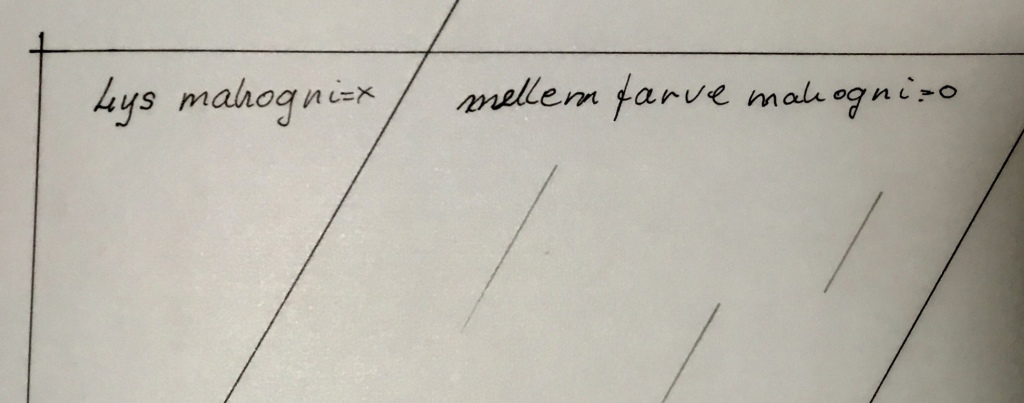 Lys mahogni=x
mellem farve mahogni=o